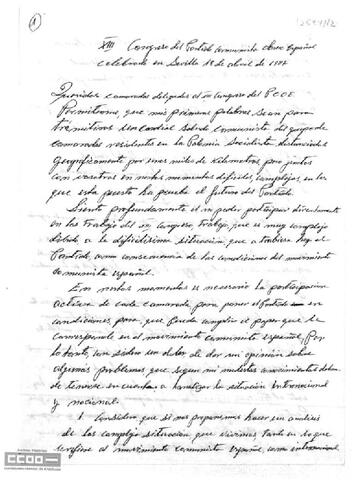 1
XIII Congreso del Partido Comunista Obrero Español
celebrado en Sevilla 18 de abril de
Queridos camaradas delegados al Congreso del PCOE
Permitirme, que mis primeras palabras sean para
transmitiros un cordial saludo comunista del grupo de
camaradas residentes en la Polonia Socialista, distanciados
geograficamente por unos miles de kilometros, pero juntos
con vosotros en estos momentos dificiles, complejos, en los
que esta puesto ha prueba el futuro del Partido.
Siento profundamente el no poder participar directamente
en los trabajos del Congreso, trabajo, que es muy complejo
debido a la dificilisima situación que atraviesa hoy el
Partido, como consecuencia de las condiciones del movimiento
comunista español.
En estos momentos es necesario la participación
activa de cada camarada para poner el Partido en
condiciones para que pueda cumplir el papel que le
corresponde en el movimiento comunista español, Por
lo tanto, un deber de dar mi opinión sobre
algunos problemas que según mis modestos conocimientos deben
de tenerse en cuenta a analizar la situación Internacional
y nacional.
1 Considero que si nos proponemos hacer un analisis
de la compleja situación que vivimos tanto en lo que
se refiere al movimiento comunista español, como internacional
CCOO